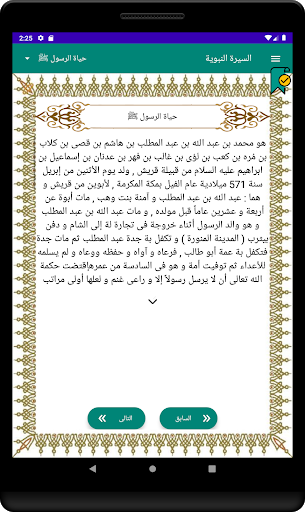 2:25
السيرة النبوية
حياة الرسول ﷺ
حياة الرسول ﷺ
هو محمد بن عبد الله بن عبد المطلب بن هاشم بن قصى بن كلاب
بن فره بن كعب بن لؤى بن غالب بن فهر بن عدنان بن إسماعيل بن
ابراهيم عليه السلام من قبيلة قريش , ولد يوم الأثنين من إبريل
سنة 571 ميلادية عام الفيل بمكة المكرمة , لأبوين من قريش و
هما : عبد الله بن عبد المطلب و آمنة بنت وهب , مات أبوة عن
أربعة و عشرين عاماً قبل مولده , و مات عبد الله بن عبد المطلب
و هو والد الرسول أثناء خروجة فى تجارة لة إلى الشام و دفن
بيثرب ( المدينة المنورة ) و تكفل بة جدة عبد المطلب ثم مات جدة
فتكفلة بة عمة أبو طالب , فرعاه و آواه و حفظه ووعاه و لم يسلمه
للأعداء ثم توفيت أمة و هو فى السادسة من عمرهإقتضت حكمة
الله تعالى أن لا يرسل رسولاً إلا و راعى غنم و لعلها أولى مراتب
السابق
التالى